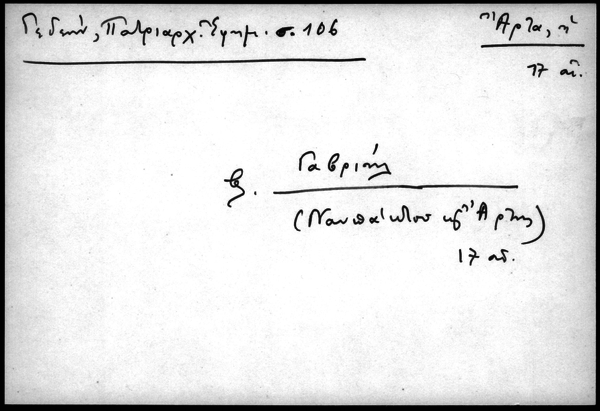 Γεδεών, Πατριαρχ. Ἐφημ. σ. 106
Ἄρτα, ἡ
17 αἰ.
β. Γαβριήλ
(Ναυπάκτου καὶ Ἄρτης)
17 αἰ.